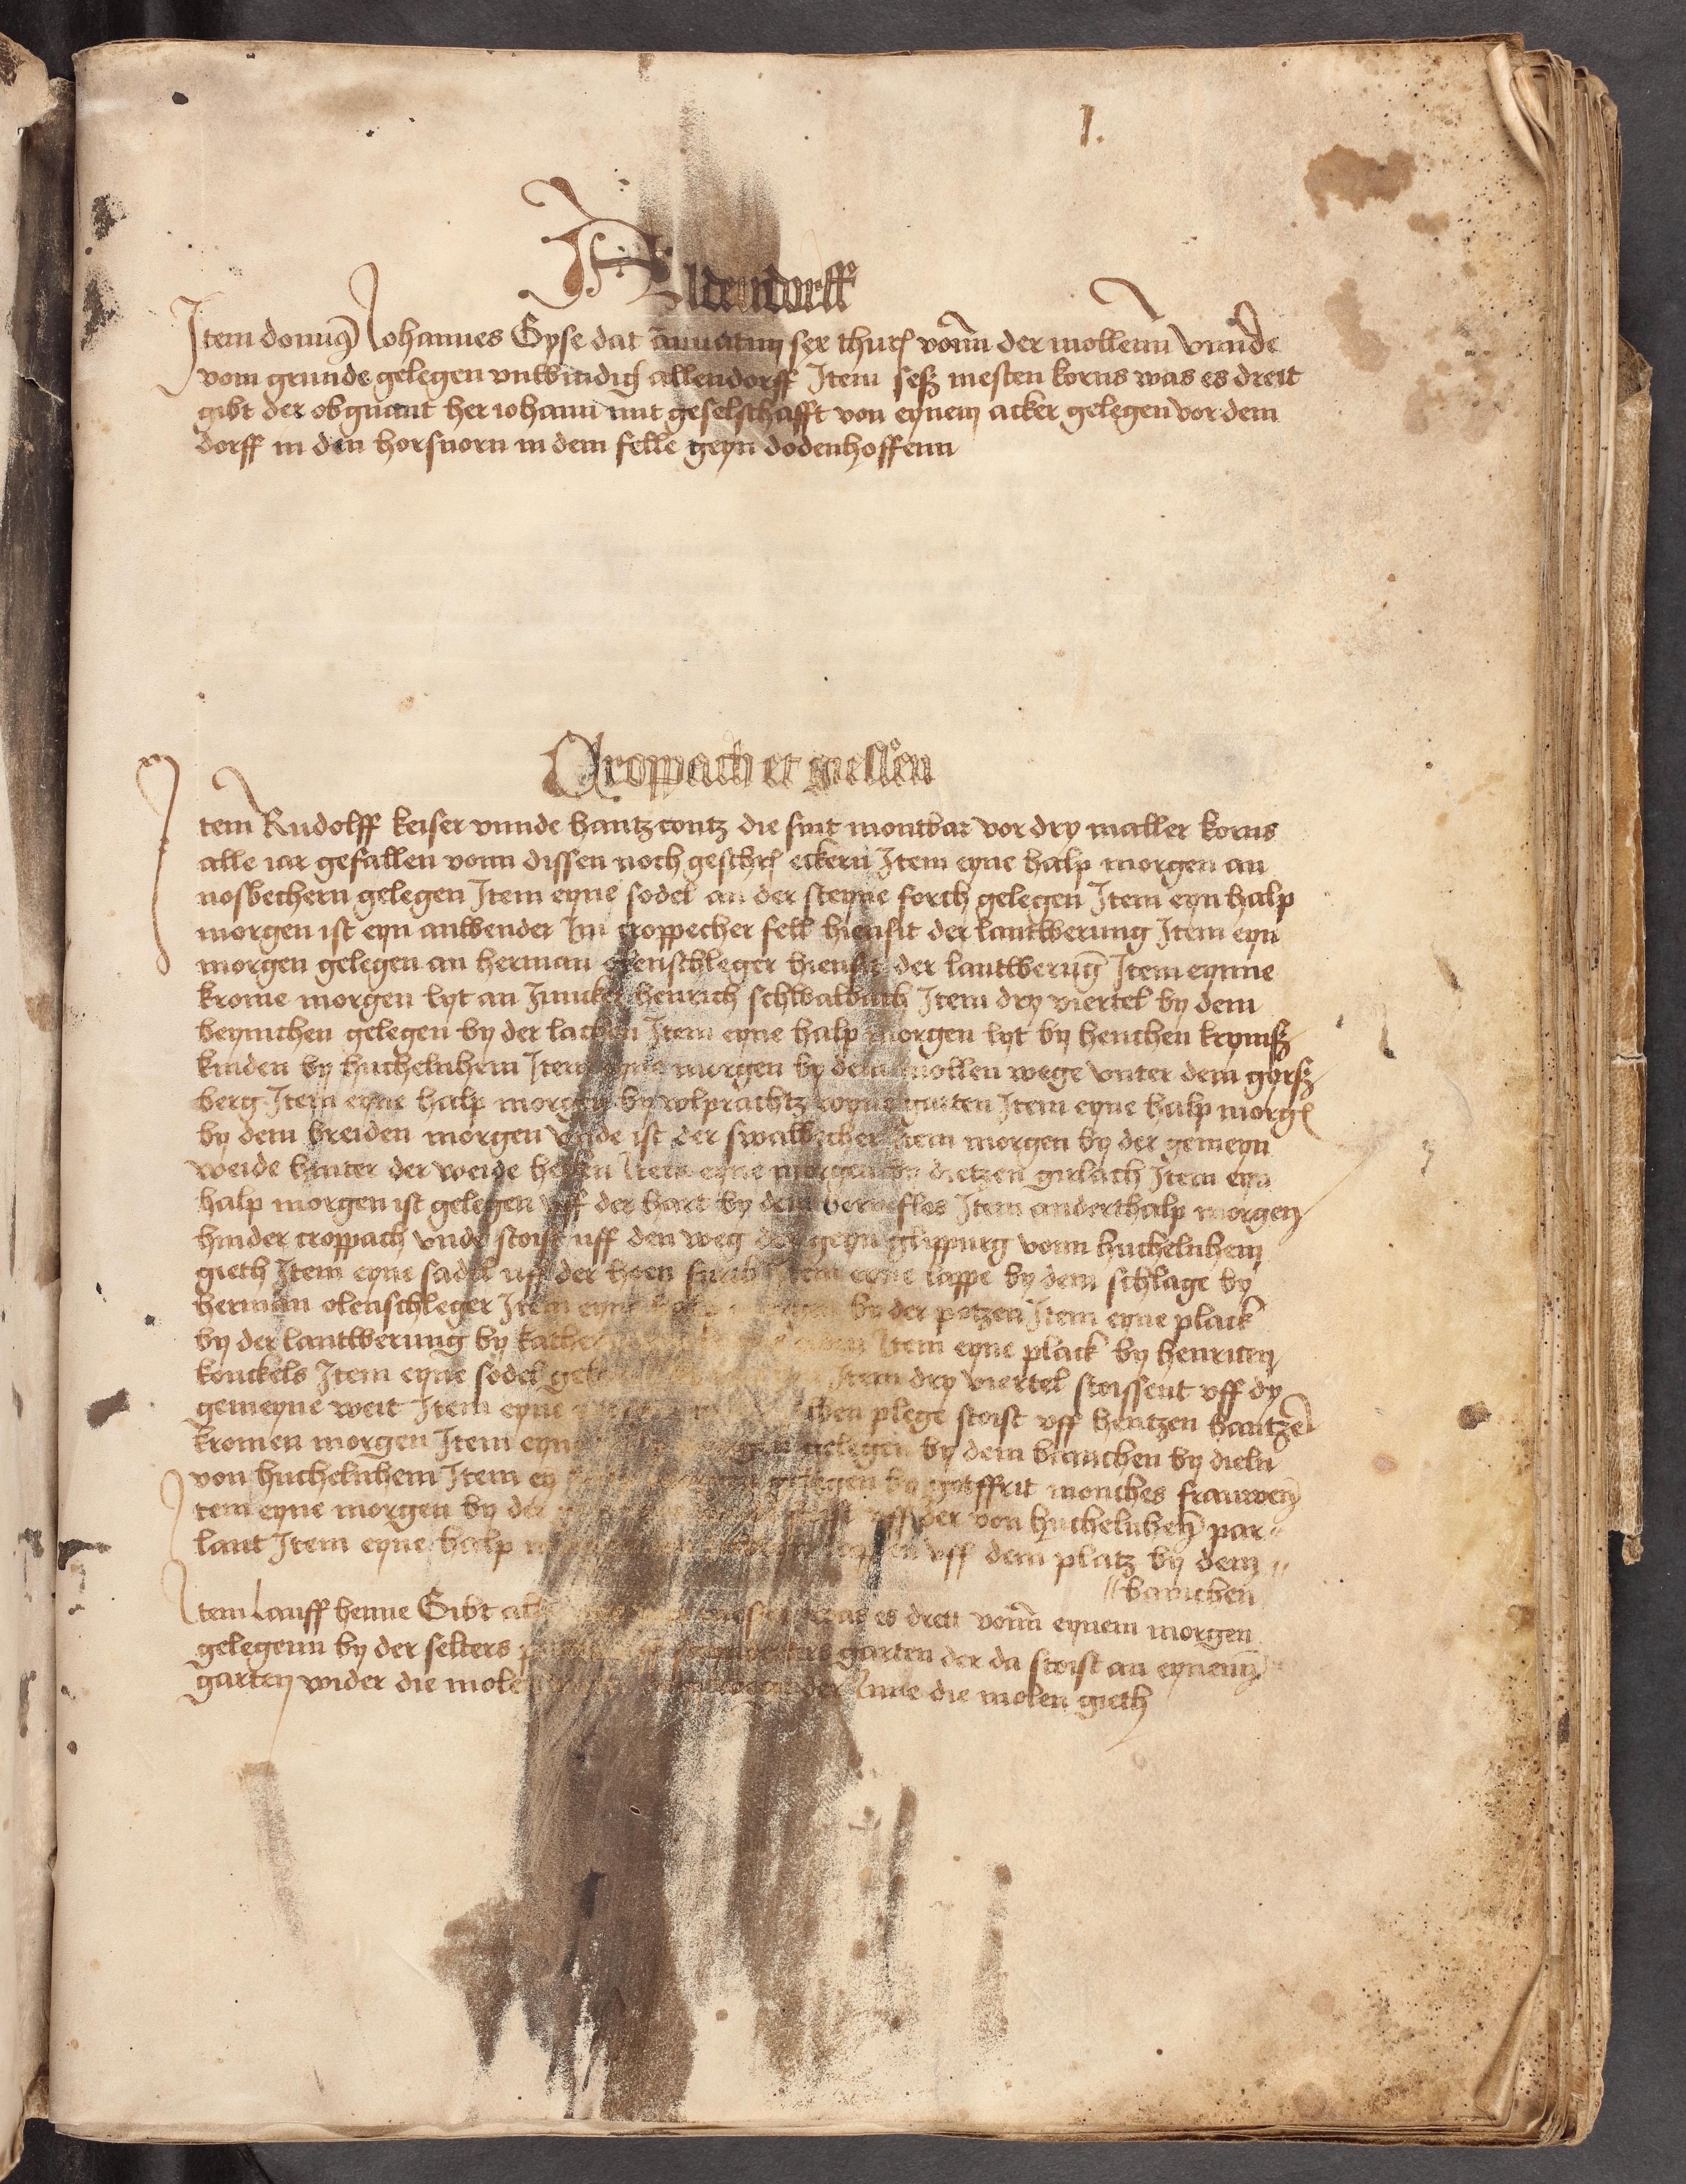 1.
Aldendorff
Item domin9 Johannes Gyse dat annuatim sex thur vonn der mollenn vnnde
vom grunde gelegen vnwindig allendorff Item seß mesten korns was es dreit
gibt der obgnant her iohann mit geselschafft von eynem acker gelegen vor dem
dorff in den horsnorn in dem felle geyn dodenhoffenn
Croppach et giessen
Item Rudolff keiser vnnde hantz contz die sint montbar vor dry maller korns
alle iar gefallen vonn dissen noch geschr eckern Item eyne halp morgen an
nosbechern gelegen Item eyne sodel an der steyne forch gelegen Item eyn halp
morgen ist eyn anwender Im croppecher fell hiensit der lantwerung Item eyn
morgen gelegen an herman olenschleger hiensit der lantwerung Item eynne
krome morgen lyt an Juncker henrich schwalbach Item dry viertel by dem
beymchen gelegen by der lachen Item eyne halp morgen lyt by henchen krymß
kinden by huchelnhem Item eyne morgen by dem mollen wege vnter dem gorß
berg Item eyne halp morgen by wlprachtz wyngarten Item eyne halp morg
by dem breiden morgen vnde ist der swalbecher Item morgen by der gemeyn
weide hinter der weide hecken Item eyne morgen by dietzen girlach Item eyn
halp morgen ist gelegen vff der hart by dem bernefloß Item anderthalp morgen
hinder croppach vnde stoist uff den weg der geyn glippurg vonn huchelnhem
gieth Item eyne sadel uff der hoen Item eyne lappe by dem schlage by
herman olenschleger Item eyne by der potzen Item eyne plack
by der lantwerung by Item eyne plack by henricen
konckels Item eyne sodel Item dry viertel stoissent vff dy
gemeyne weit Item eyne plege stoist vff hentzen hantzen
kromen morgen Item eyne gelegen by dem bamchen by dieln
von huchelnhem Item gelegen by gotffrit monches frauwen
Item eyne morgen by der vff der von huchelnhem par
lant Item eyne halp vff dem platz by dem
bamchen
Item Lauff henne Gibt was es dreit vonn eynem morgen
gelegenn by der selters garten der da stoist an eynenn
garten wider die molen der Inne die molen gieth